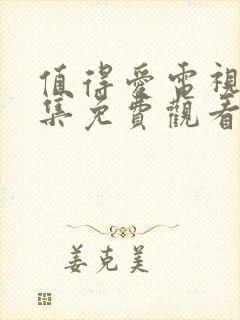 值得愛電視
集免費觀看
姜克美